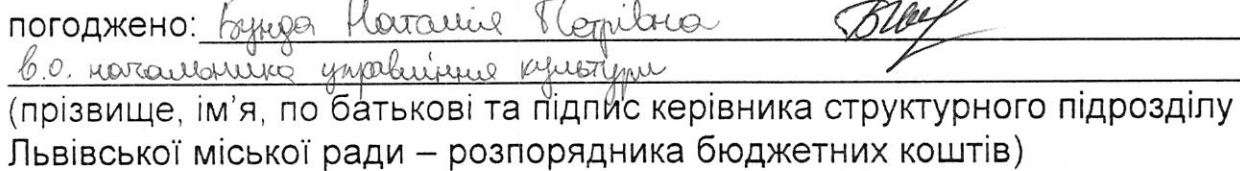 погоджено: Бунда Наталія Петрівна
в.о. начальника управління культури
(прізвище, ім’я, по батькові та підпис керівника структурного підрозділу
Львівської міської ради – розпорядника бюджетних коштів)